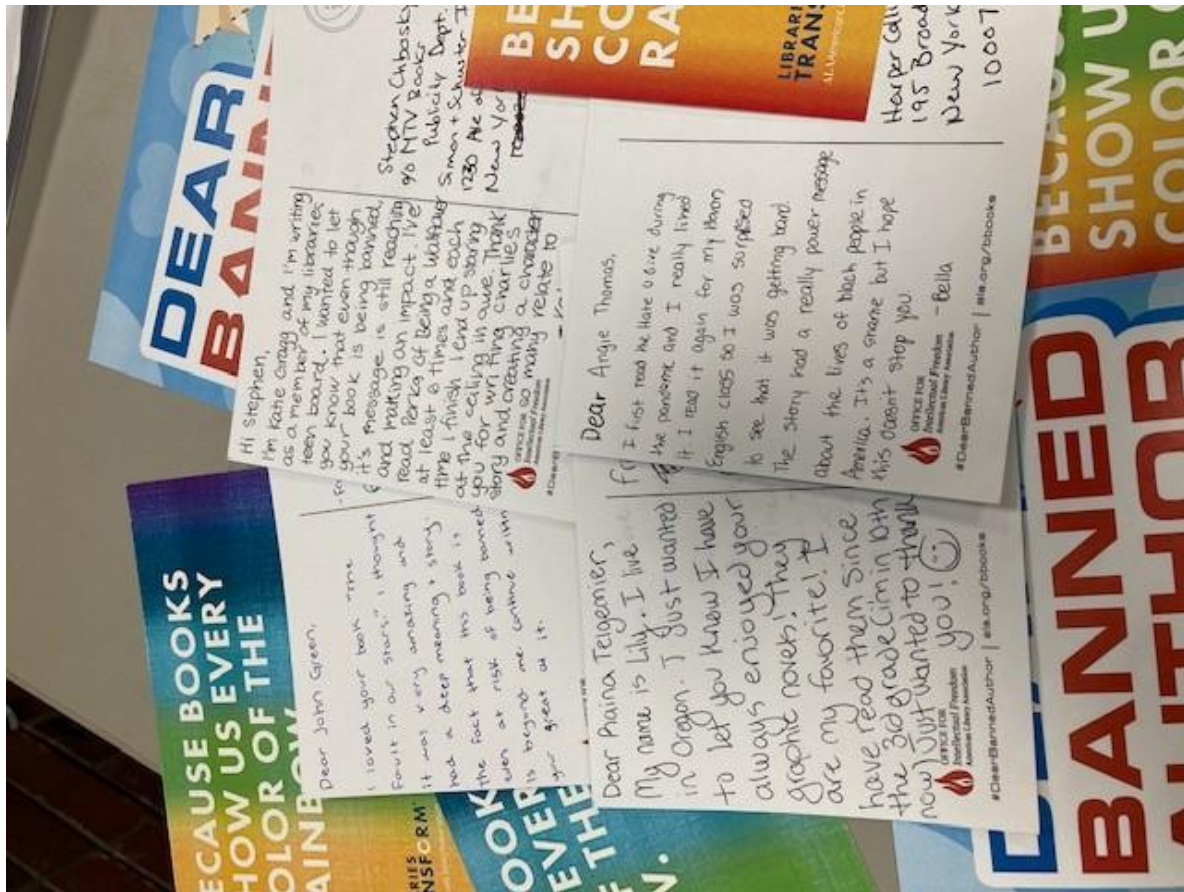 DEAR
BANN
Hi Stephen,
I'm Katie Gragg and I'm writing
as a member of my libraries
teen board. I wanted to let
you know that even though
your book is being banned,
it's message is still reaching
and making an impact. I've
read Perks of Being a Wallflower
at least 8 times and each
time I finish I end up staring
at the ceiling in awe. Thank
you for writing charlies
story and creating a character
so many relate to
OFFICE FOR
Intellectual Freedom
American Library Association
#DearBannedAuthor
Stephen Chbosky
c/o MTV Books
Publicity Dept.
Simon + Schuster I
1230 Ave of
New Yor
BE
SH
CO
RA
LIBRARI
TRANS
Harper Colli
195 Broad
New York
10007
Dear Angie Thomas,
I first read the Hate U Give during
the pandeme and I really liked
it. I read it again for my Honon
English class so I was surprised
to see that it was getting band.
The story had a really power message
about the lives of black people in
America. It's a shame but I hope
this doesnt stop you.
- Bella
OFFICE FOR
Intellectual Freedom
American Library Association
#DearBannedAuthor | ala.org/bbooks
Dear John Green,
I loved your book "The
Fault in our stars." I thought
it was very amazing and
had a deep meaning + story.
the fact that this book is
even at risk of being banned
is beyond me. continue writin
your great at it.
Dear Raina Telgemier,
My name is Lily. I live
in Oregon. I just wanted
to let you know I have
always enjoyed your
graphic novels! They
are my favorite! I
have read them since
the 3rd grade (im in 10th
now) Just wanted to thank
you!
OFFICE FOR
Intellectual Freedom
American Library Association
#DearBannedAuthor | ala.org/bbooks
ECAUSE BOOKS
HOW US EVERY
OLOR OF THE
AINBOW
RIES
NSFORM
OOK
EVER
F THE
V.
BECAUS
SHOW U
COLOR
BANNED
AUTHOR